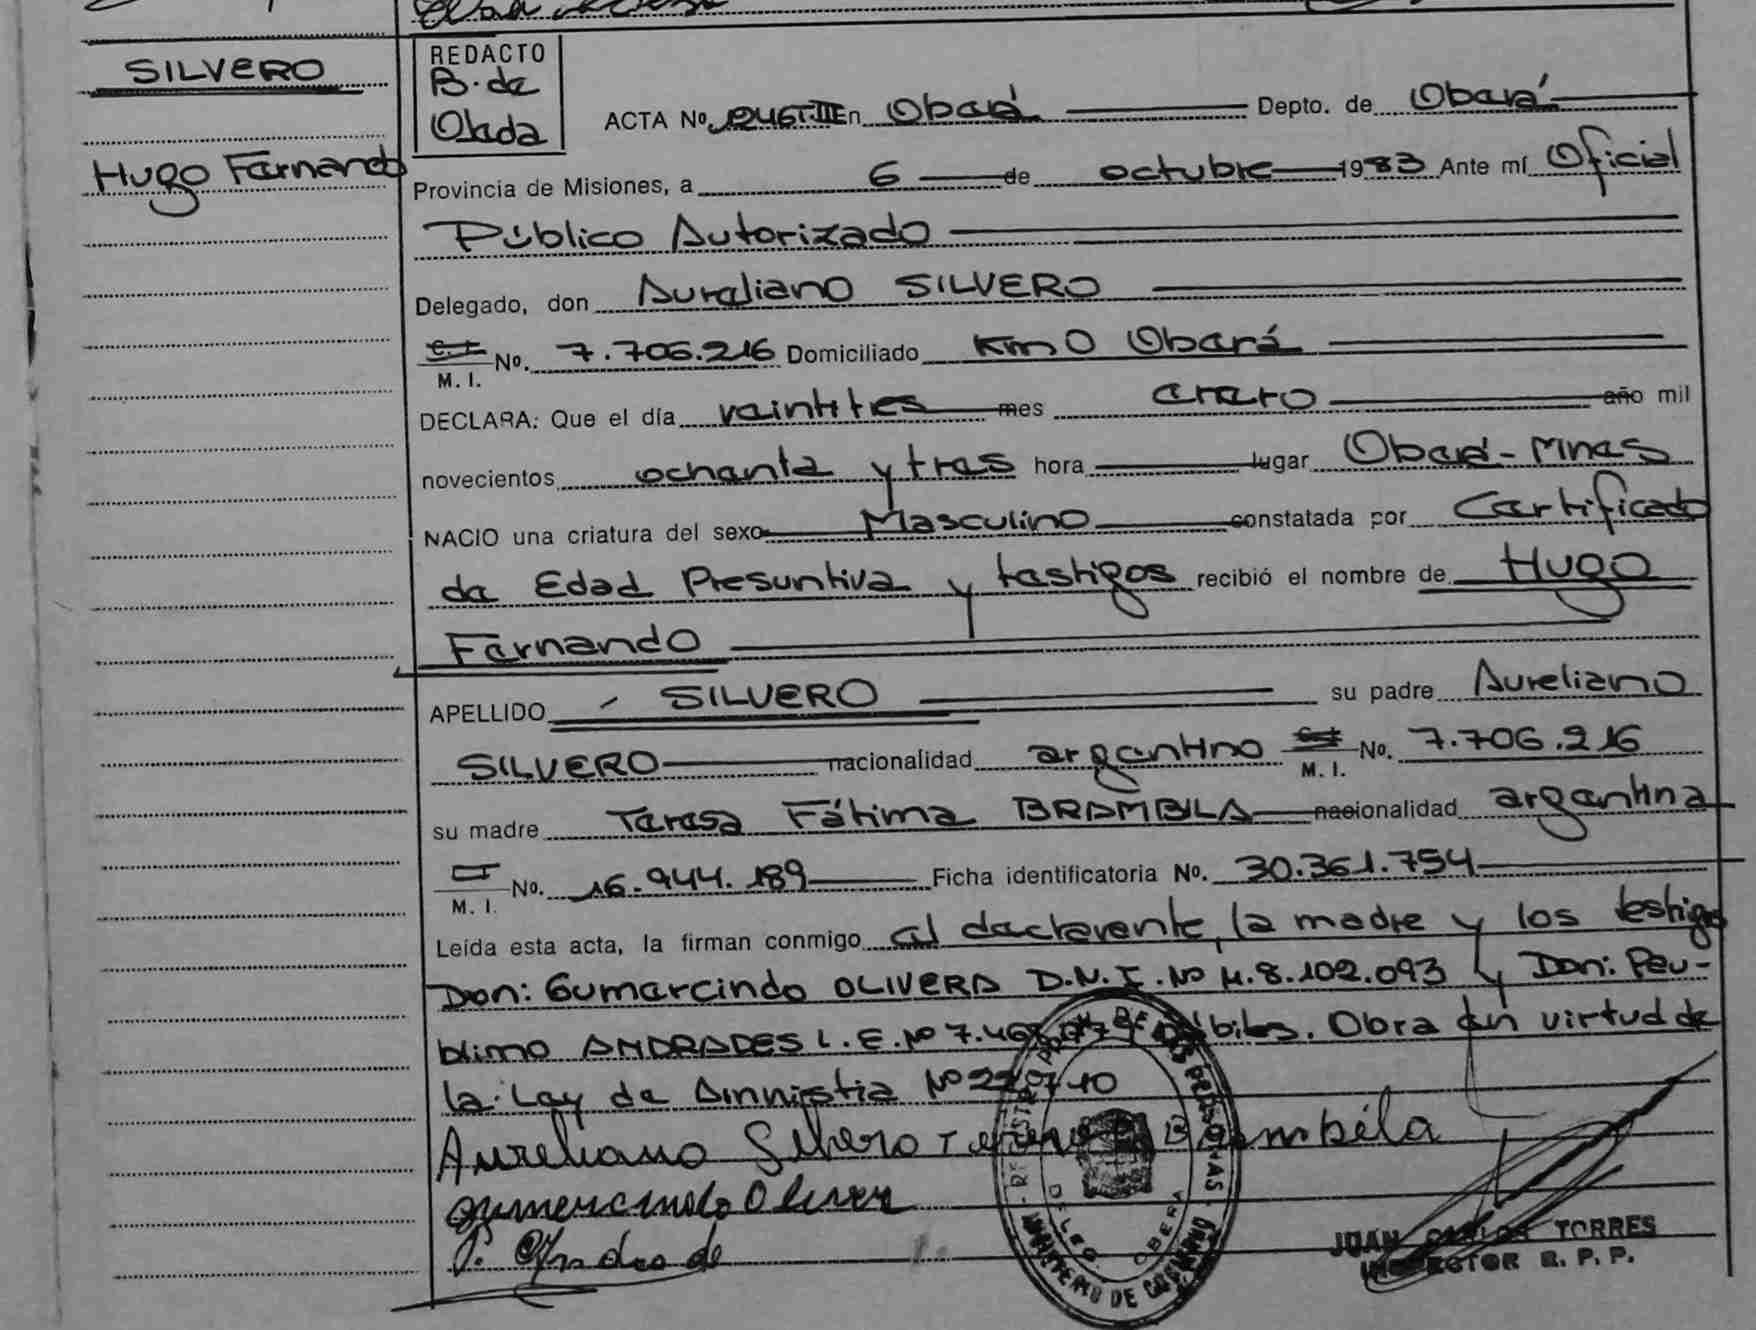 SILVERO
Hugo Fernando
REDACTO
B. de
Olada
ACTA No. En Oberá Depto. de Oberá
Provincia de Misiones, a 6 de octubre 1983 Ante mí Oficial
Público Autorizado
Delegado, don Aureliano SILVERO
M. I. No. 7.706.216 Domiciliado Km 0 Oberá
DECLARA: Que el día veintitres mes enero año mil
novecientos ochenta y tres hora lugar Oberá - Mnes
NACIO una criatura del sexo Masculino constatada por Certificado
de Edad Presuntiva y testigos recibió el nombre de Hugo
Fernando
APELLIDO SILVERO su padre Aureliano
SILVERO nacionalidad argentino M. I. No. 7.706.216
su madre Teresa Fátima BRAMBILA nacionalidad argentina
M. I. No. 16.944.189 Ficha identificatoria No. 30.361.754
Leída esta acta, la firman conmigo el declarante, la madre y los testigos
Don: Gumercindo OLIVERA D.N.I. Nº M. 8.102.093 y Don: Peu-
blimo ANDRADES L.E. Nº hábiles. Obra en virtud de
la Ley de Amnistia Nº
Aureliano Silvero Brambila
gumercindo Oliver
P. Andrade
JUAN CARLOS TORRES
INSPECTOR R. P. P.
DE LAS PERSONAS
MINISTERIO DE GOBIERNO
DELEG. OBERA